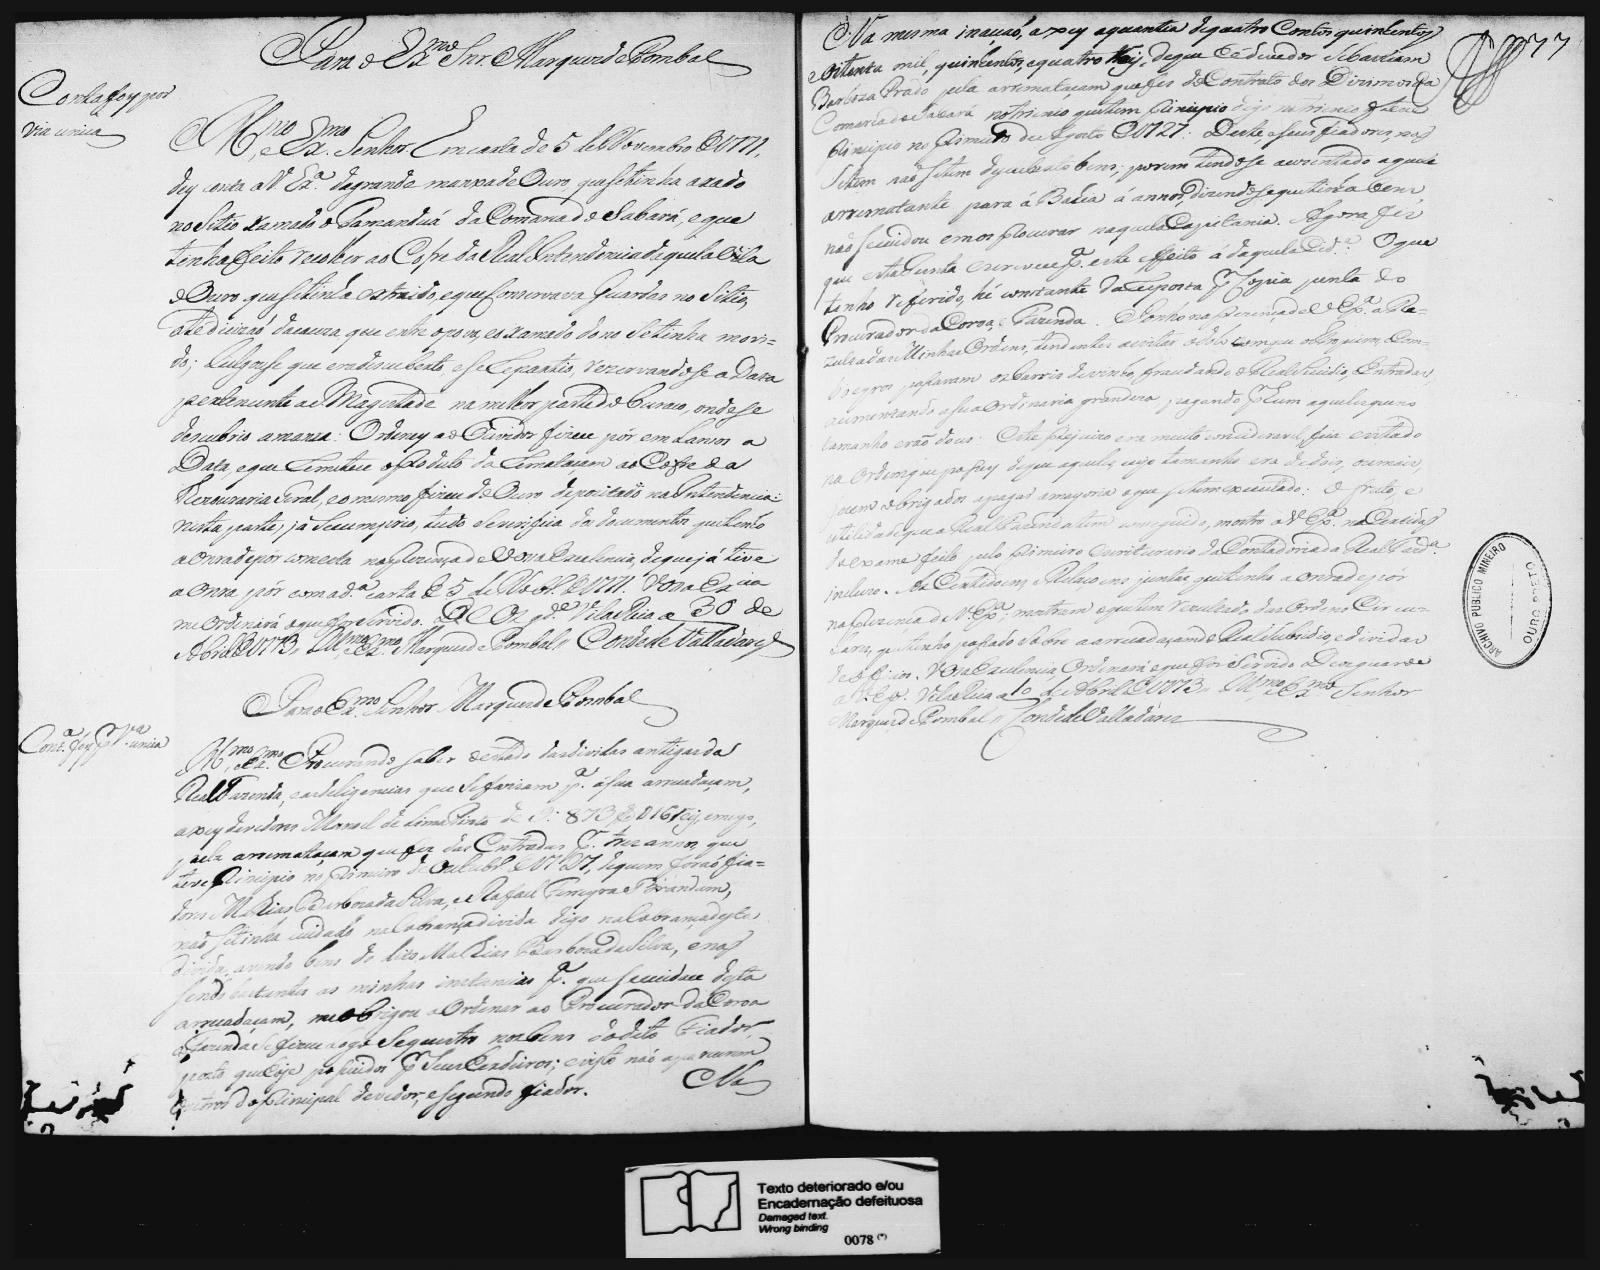 Para o Ex.mo Snr. Marquez de Pombal
Conta foy por
via unica
Ill.mo e Ex.mo Senhor Em carta de 5 de Novembro de 1771,
dey conta a V. Ex.a da grande manxa de Ouro, que se tinha axado
no Sitio xamado o Tamanduá da Comarca de Sabará, e que
tinha feito recolher ao Cofre da Real Intendencia daquela Vila
o Ouro que se tinha extraido, e que conservava Guardas no Sitio,
até decizaó da cauza, que entre o povo, e o xamado dono se tinha movi=
do; Julgouse que era descuberto, e se repartio, rezervandose a Data
pertencente a S. Magestade na milhor parte do buraco, onde se
descubrio a manxa: Ordeney ao Ouvidor fizece pór em Lansos a
Data, e que remetece o produto da rematacam ao Cofre da
Thezouraria Geral, e o mesmo fizece do Ouro depozitado na Intendencia:
nesta parte, já se cumprio, tudo se verifica dos documentos que tenho
a onra de pór com esta na prezença de Vossa Excelencia, de que já tive
a onra pór com a d.a carta de 5 de Nov.o de 1771. Vossa Ex.cia
me Ordenará o que for servido. D.s G.de a V. Ex.a Vila Rica a 30 de
Abril de 1773 Ill.mo e Ex.mo S.r Marquez de Pombal // Conde de Valladares
Para o Ex.mo Senhor Marquez de Pombal
Cont.a foy p.r V.a unica
Ill.mo e Ex.mo S.r Procurando saber o estado das dividas antigas da
Real Fazenda, e as deligencias que se faziam p.a a sua arrecadaçam,
axey devedor Manoel de Lima Pinto de
pela arrematacam que fez das Entradas p.r tres annos, que
teve principio no primeiro de Outubro de 1727, de quem foraó fia=
dores Mathias Barboza da Silva, e Rafael Ferreyra Brandam,
naó se tinha cuidado na cobrança divida digo na cobrança desta
divida, avendo bens do dito Mathias Barboza da Silva, e naó
sendo bastantes as minhas instancias p.a que se cuidace desta
arrecadaçam, me obrigou a Ordenar ao Procurador da Coroa
e Fazenda, se fizece logo Sequestro nos bens do dito Fiador,
posto que oje possuidos p.r seus Erdeiros; visto naó aparecerem
outros do principal devedor, e segundo fiador.
Na
77
Na mesma inaçaó, axey a quantia de quatro Contos quinhentos
e oitenta mil, quinhentos, e quatro Reis, de que é devedor Sebastiam
Barboza Prado pela arrematacam que fez do Contrato dos Dizimos da
Comarca do Sabará no trienio que tem principio digo no trienio que teve
principio no primeiro de Agosto de 1727. Deste, e seus fiadores, naó
se tem descuberto bens; porem tendose auzentado aquele
arrematante para a Bahia á annos, dizendose que tinha bens
naó se cuidou em os procurar naquela Capitania. Agora fiz
que esta Junta escrevece p.a este effeito á daquela Cid.e O que
tenho referido, hé constante da reposta p.r Copia junta do
Procurador da Coroa, e Fazenda. Ponho na prezença de V. Ex.a o Re=
zultado das Minhas Ordens, tendentes a evitar o dolo com que
os negros passavam os barris de vinho, fraudando o Real Subsidio, e Entradas,
aumentando a sua Ordinaria grandeza, pagando p.r hum aqueles que no
tamanho eraó dous: Este prejuizo era muito consideravel, fica evitado
na Ordem que passey de que aqueles, cujo tamanho era de dois, ou mais,
focem obrigados a pagar a mayoria o que se tem executado: o fruto, e
utilidade que a Real Fazenda tem conseguido, mostro a V. Ex.a na Certidaó
do exame feito pelo primeiro escriturario da Contadoria da Real Fazd.a
incluzo. As Certidoens, e Relaçoens juntas, que tenho a onra de pór
na prezença de V. Ex.a, mostram o que tem rezultado das Ordens Circu=
lares, que tenho passado sobre a arrecadaçam do Real Subsidio, e dividas
de Officios. Vossa Excelencia Ordenará o que for Servido Deos guarde
a V. Ex.a Vila Rica a 10 de Abril de 1773 // Ill.mo e Ex.mo Senhor
Marquez de Pombal // Conde de Valladares
ARCHIVO PUBLICO MINEIRO
OURO PRETO
Texto deteriorado e/ou
Encadernação defeituosa
Damaged text.
Wrong binding
0078 (*)